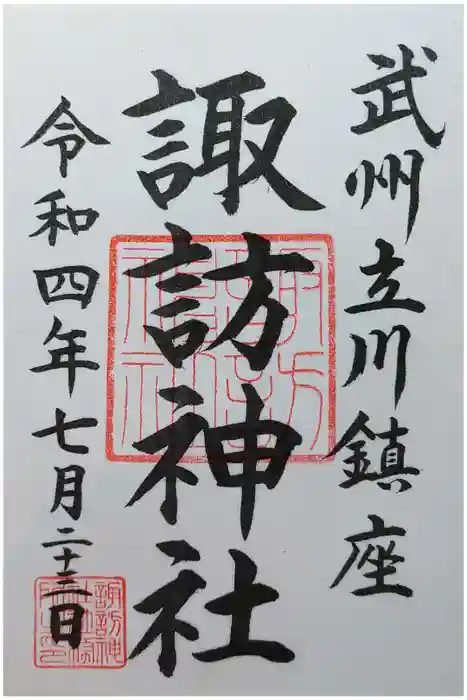 武州立川鎮座
諏訪神社
令和四年七月二十三日